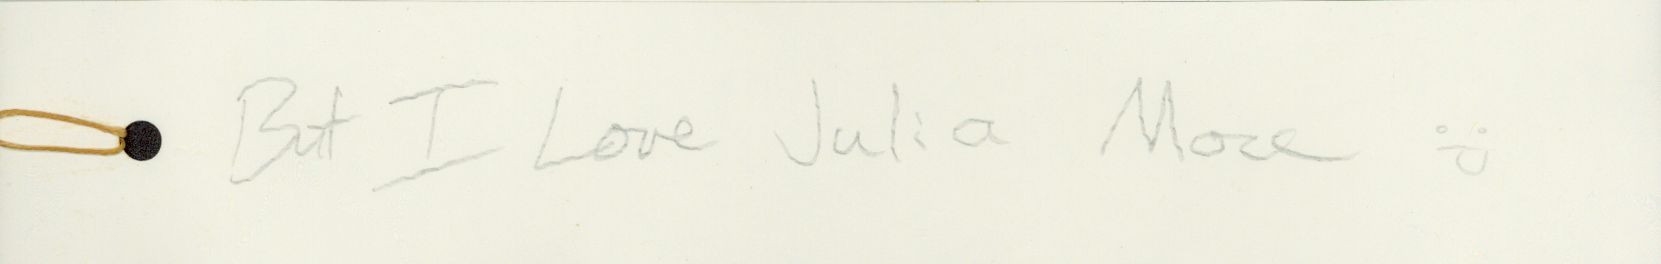 But I Love Julia More :)